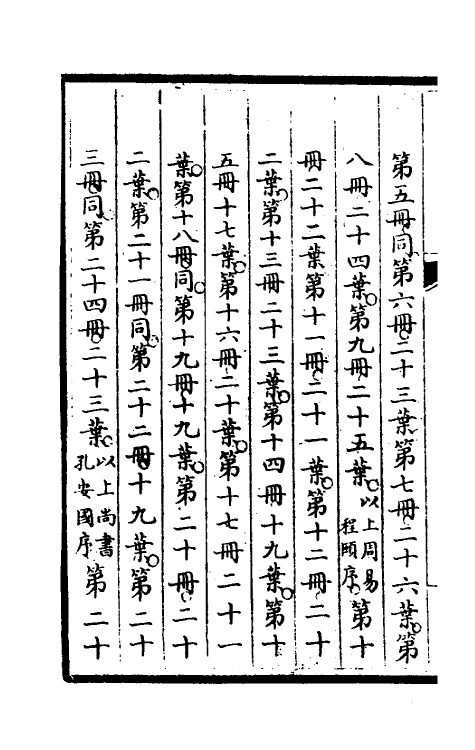 第五冊同第六冊二十三葉第七冊二十六葉第
八冊二十四葉第九冊二十五葉以上周易程頤序第十
冊二十二葉第十一冊二十一葉第十二冊二十
二葉第十三冊二十三葉第十四冊十九葉第十
五冊十七葉第十六冊二十葉第十七冊二十一
葉第十八冊同第十九冊十九葉第二十冊二十
二葉第二十一冊同第二十二冊十九葉第二十
三冊同第二十四冊二十三葉以上尚書孔安國序第二十